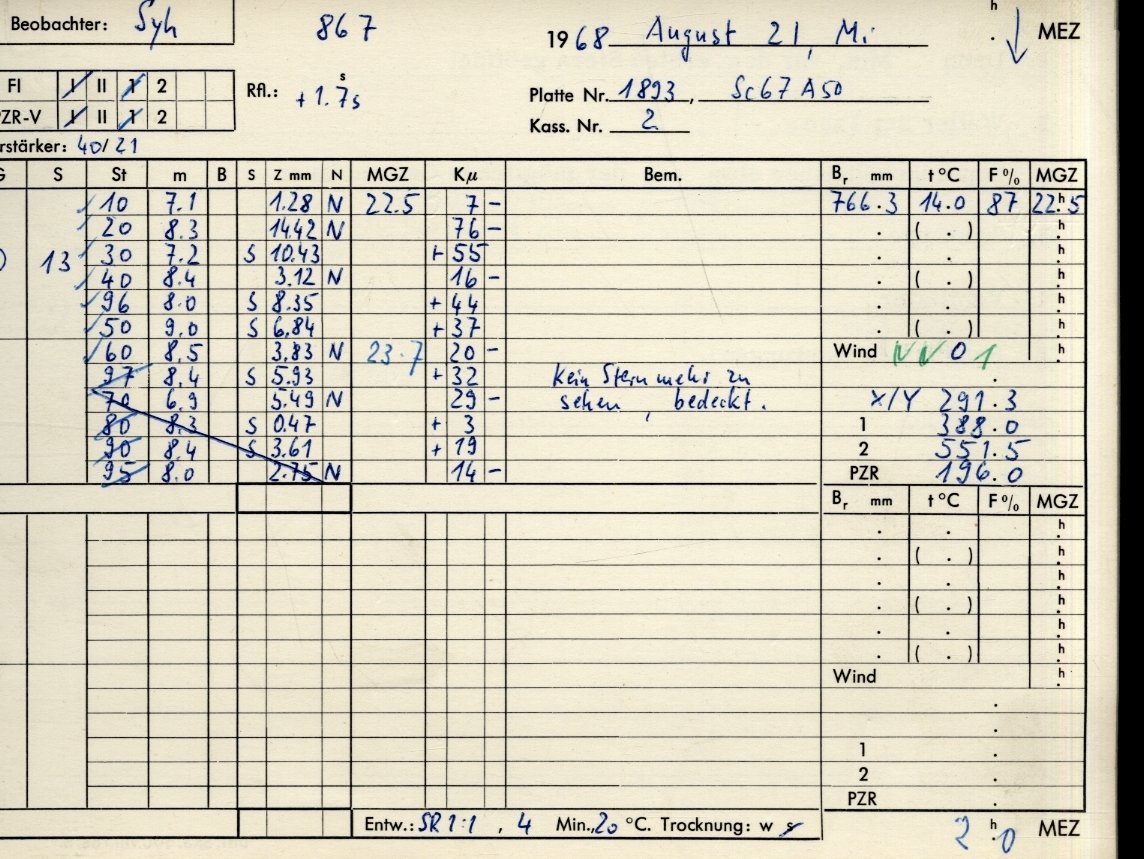 Beobachter: Syh 867 1968 August 21, Mi h . MEZ
FI I II 1 2 RA.: +1.7s s Platte Nr. 1893, Sc67 A50
PZR-V I II 1 2 Kass. Nr. 2
rstärker: 40/21
S St m B S Z mm N MGZ Kµ Bem. Br mm t °C F% MGZ
10 7.1 1.28 N 22.5 7 - 766.3 14.0 87 22.h5
20 8.3 14.42 N 76 - . ( . ) h
13 30 7.2 S 10.43 + 55 . . h
40 8.4 3.12 N 16 - . ( . ) h
96 8.0 S 8.35 + 44 . . h
50 9.0 S 6.84 + 37 . ( . ) h
60 8.5 3.83 N 23.7 20 - Wind NN 0 1 h
97 8.4 S 5.93 + 32 Kein Stern mehr zu .
70 6.9 5.49 N 29 - sehen, bedeckt. X/Y 291.3
80 8.3 S 0.47 + 3 1 388.0
90 8.4 S 3.61 + 19 2 551.5
95 8.0 2.75 N 14 - PZR 196.0
Br mm t °C F% MGZ
. . h
. ( . ) h
. . h
. ( . ) h
. . h
. ( . ) h
Wind h
.
.
1 .
2 .
PZR .
Entw.: SR 1:1, 4 Min., 20 °C. Trocknung: w s 2 h.0 MEZ